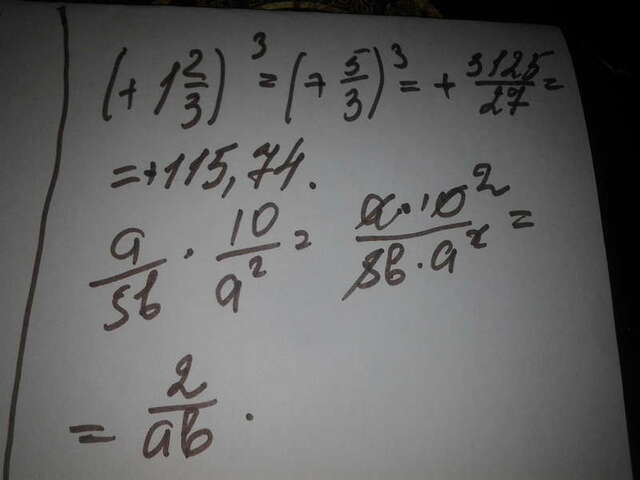 (+1 2/3)^3 = (+ 5/3)^3 = + 3125/27 =
= +115,74.
a/5b · 10/a^2 = a·10^2/5b·a^2 =
= 2/ab.